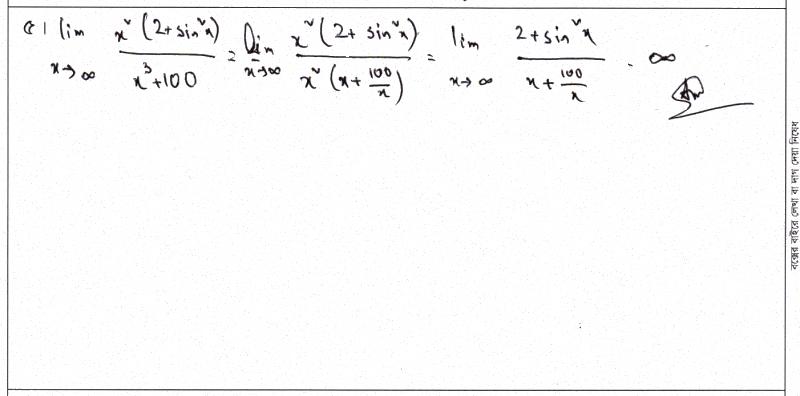 ৫। lim x→∞ x²(2+sin²x) / x³+100 = lim x→∞ x²(2+sin²x) / x²(x+100/x) = lim x→∞ 2+sin²x / x+100/x = ∞
Ans
বক্সের বাইরে লেখা বা দাগ দেয়া নিষেধ